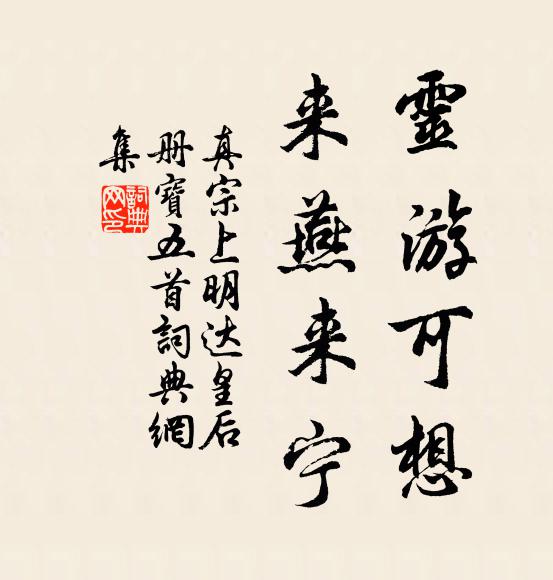 靈游可想
来燕来宁
真宗上明达皇后
册寶五首詞典網
集
詞典
网印